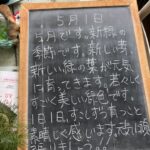 5月1日
5月です。新緑の
季節です。新しい芽、
新しい緑の葉が元気
に育ってきます。若々しく
すごく美しい緑色です。
1日1日、すこしずつ育つこと
素晴しく感います。